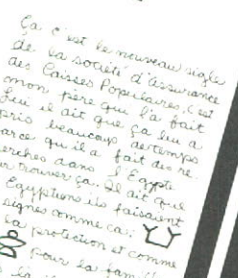 Ça c'est le nouveau sigle
de la société d'assurance
des Caisses Populaires. C'est
mon père que l'a fait
Lui il dit que ça lui a
pris beaucoup de temps
parce qu'il a fait des re-
erches dans l'Egypte
ur trouver ça. Il dit que
Egyptiens ils faisaient
signes comme ça:
la protection et comme
Pour la famil